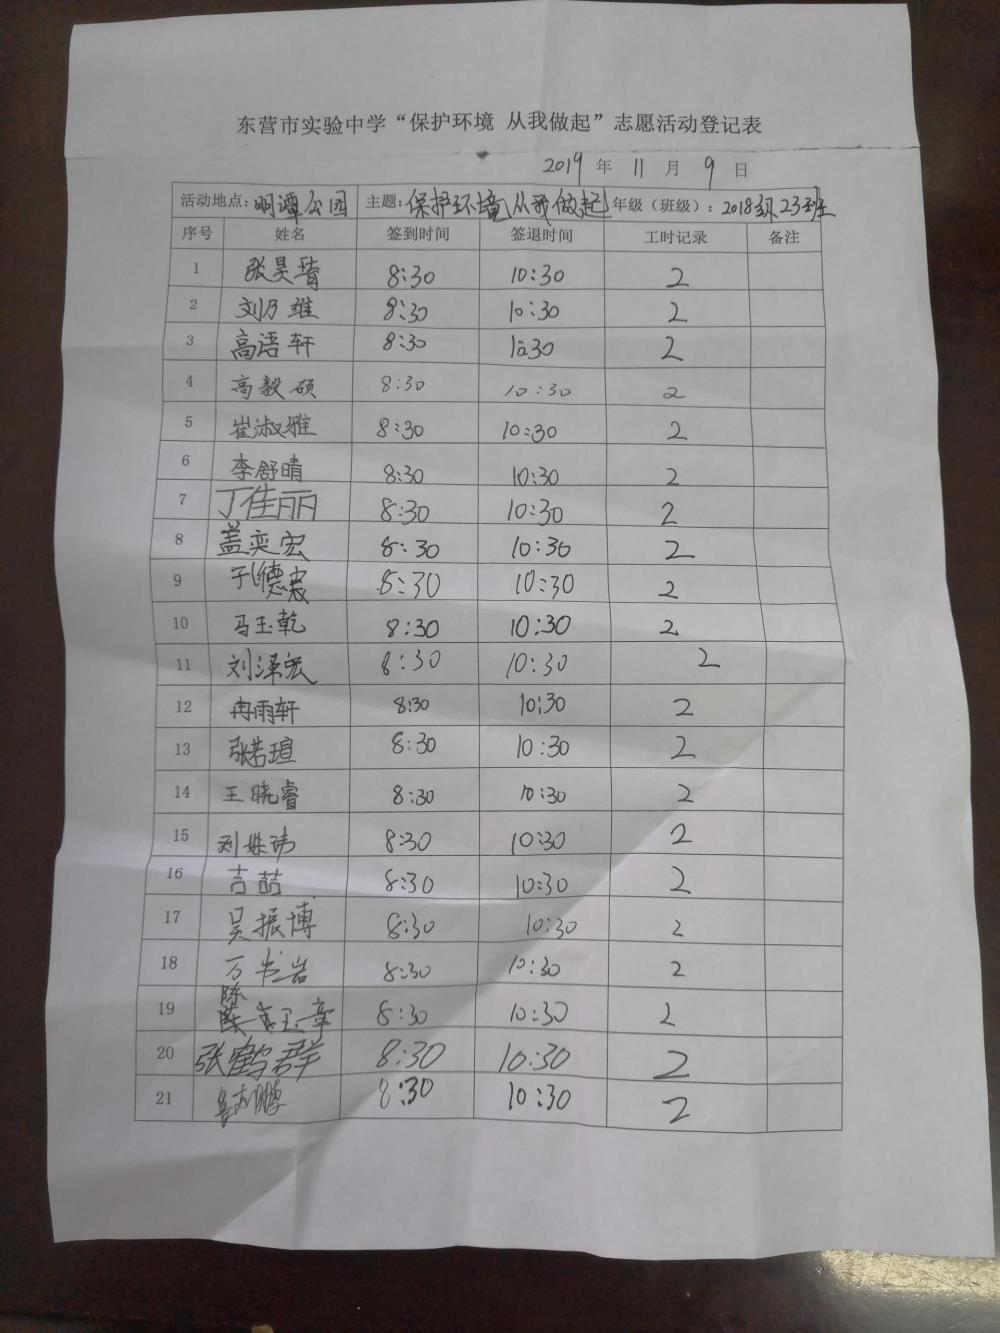 东营市实验中学“保护环境 从我做起”志愿活动登记表
2019 年 11 月 9 日
活动地点：明潭公园 主题：保护环境从我做起 年级（班级）：2018级23班
序号 姓名 签到时间 签退时间 工时记录 备注
1 张昊 8:30 10:30 2
2 刘乃维 8:30 10:30 2
3 高语轩 8:30 10:30 2
4 高毅硕 8:30 10:30 2
5 崔淑雅 8:30 10:30 2
6 李舒晴 8:30 10:30 2
7 丁佳丽 8:30 10:30 2
8 盖奕宏 8:30 10:30 2
9 孔德宸 8:30 10:30 2
10 马玉乾 8:30 10:30 2
11 刘泽宏 8:30 10:30 2
12 冉雨轩 8:30 10:30 2
13 张若瑄 8:30 10:30 2
14 王晓睿 8:30 10:30 2
15 刘姝玮 8:30 10:30 2
16 吉喆 8:30 10:30 2
17 吴振博 8:30 10:30 2
18 万书岩 8:30 10:30 2
19 陈 玉章 8:30 10:30 2
20 张鹤群 8:30 10:30 2
21 8:30 10:30 2